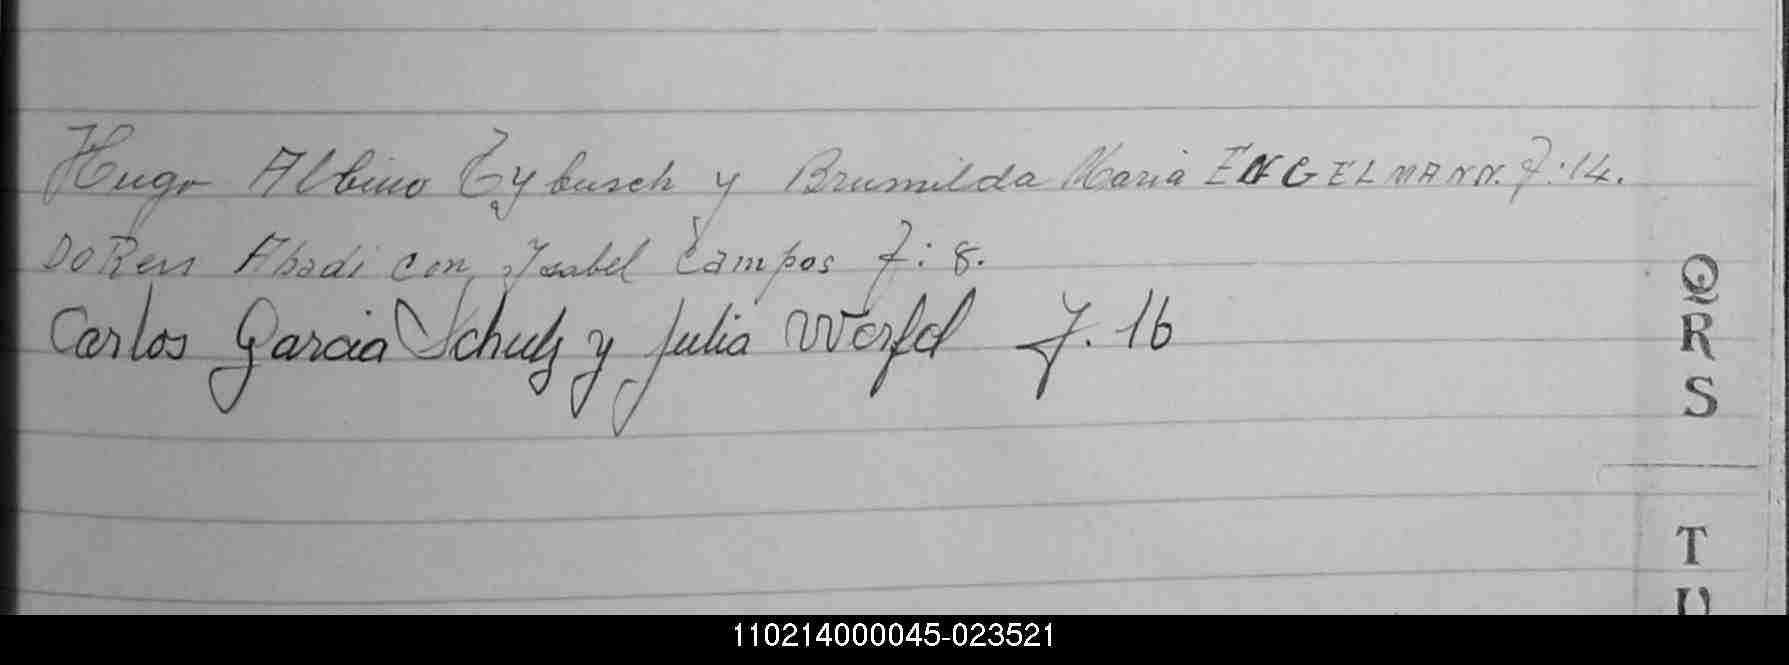 Hugo Albino Tybusch y Brumilda Maria ENGELMANN. F: 14.
DoRen Abadi con Ysabel Campos F: 8.
Carlos Garcia Schulz y Julia Werfel F. 16
Q
R
S
T
U
110214000045-023521